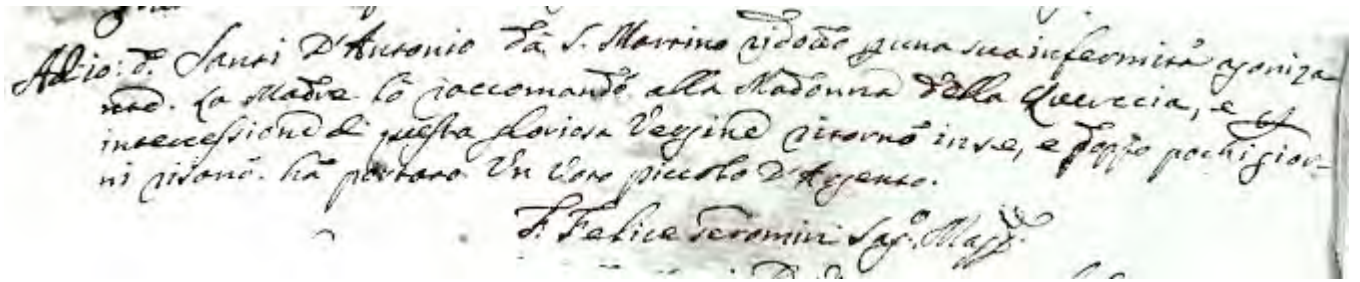 Adio: d.º Santi D'Antonio da S. Martino ridotto p una sua infermità agoniza
nte. La Madre lo raccomandò alla Madonna della Quercia, e p
intercessione di questa gloriosa Vergine ritornò in se, e doppo pochi gior-
ni risanò. hà portato Un Voto piccolo D'Argento.
F. Felice Geromini Sag. Magg.